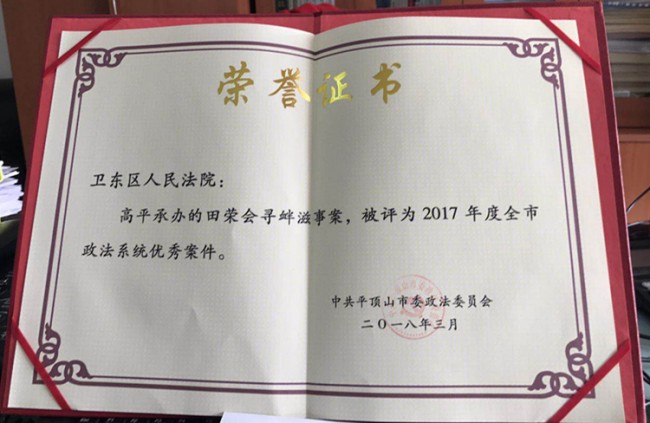 荣誉证书
卫东区人民法院：
高平承办的田荣会寻衅滋事案，被评为 2017 年度全市
政法系统优秀案件。
中共平顶山市委政法委员会
二〇一八年三月